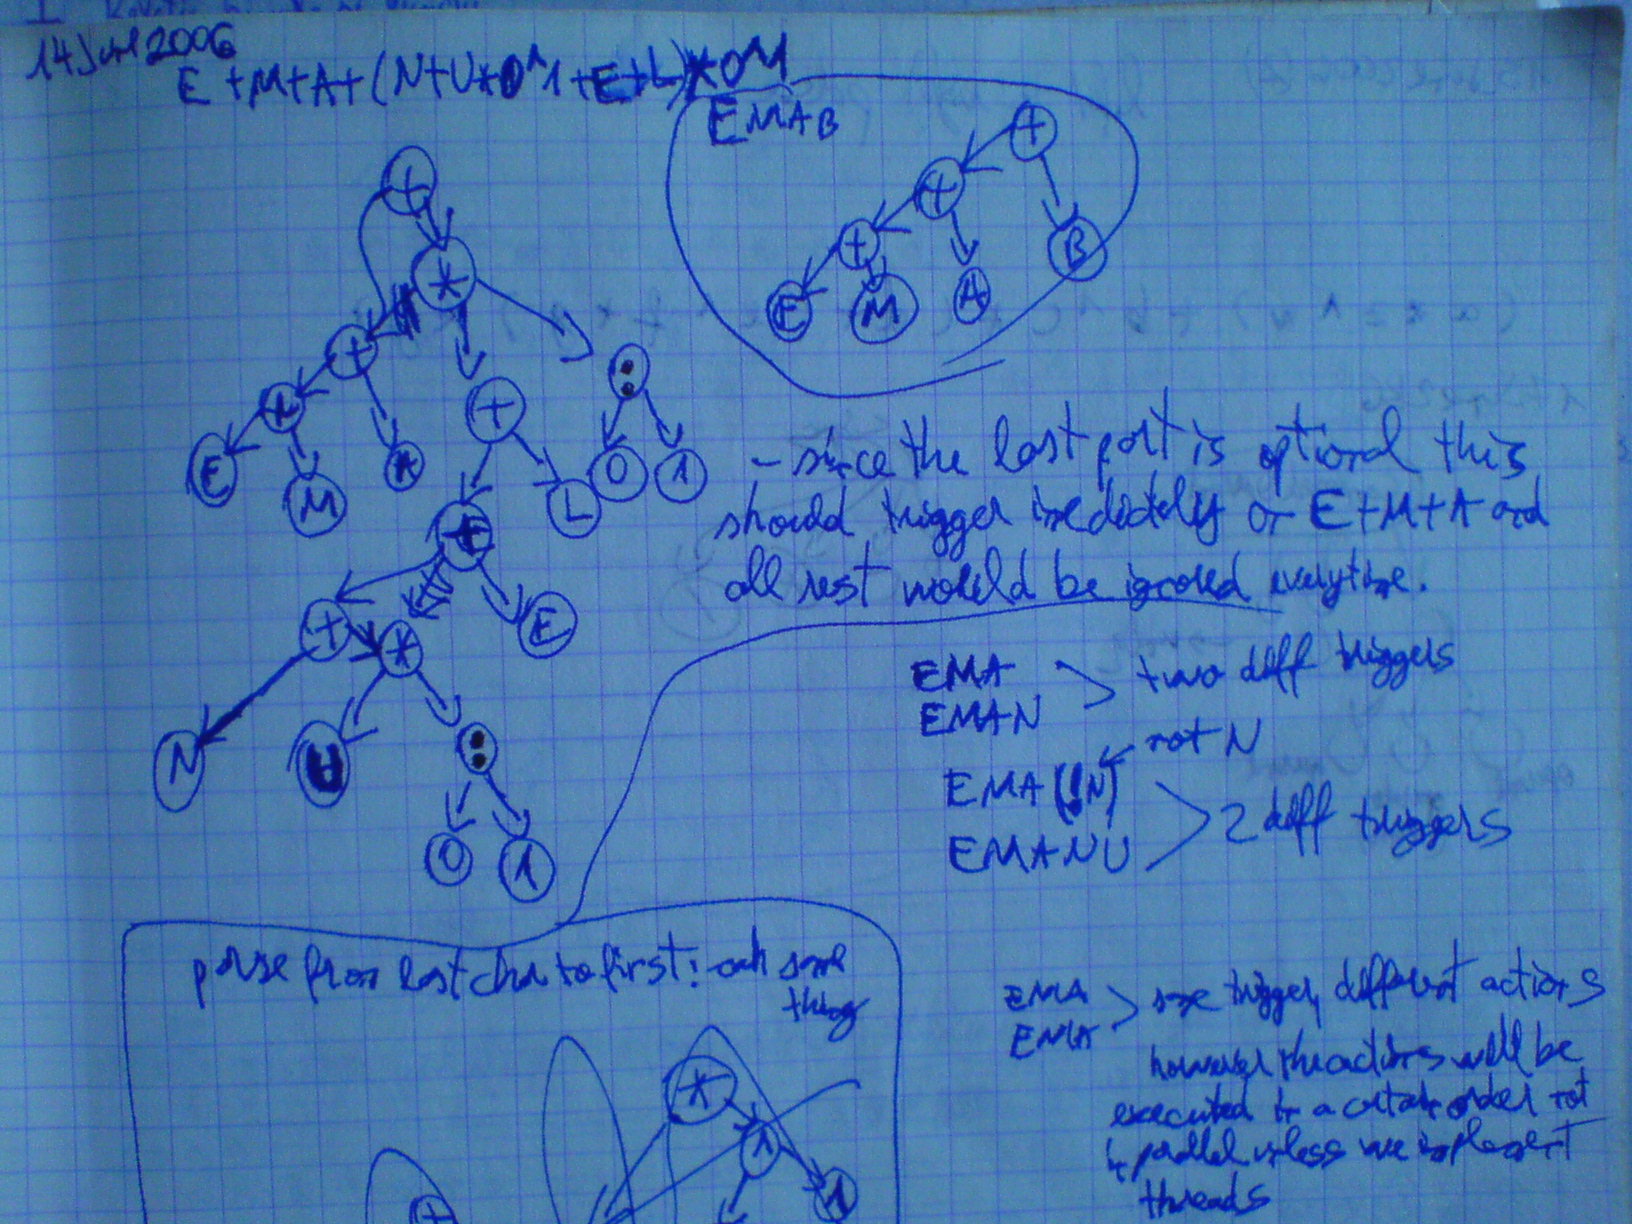 14 Jul 2006
E+M+A+(N+U*0^1+E+L)*0^1
EMAB
+
+
+
+
*
+
B
E
M
A
+
:
+
+
E
M
A
L
0
1
- since the last part is optional this
should trigger imediately on E+M+A and
all rest would be ignored everytime.
+
+
*
E
EMA
EMAN
two diff triggers
not N
N
U
:
EMA(!N)
EMANU
2 diff triggers
0
1
parse from last char to first! - same
thing
EMA
EMA
same trigger, different actions
however the actions will be
executed in a certain order not
in parallel unless we implement
threads
*
1
1
+